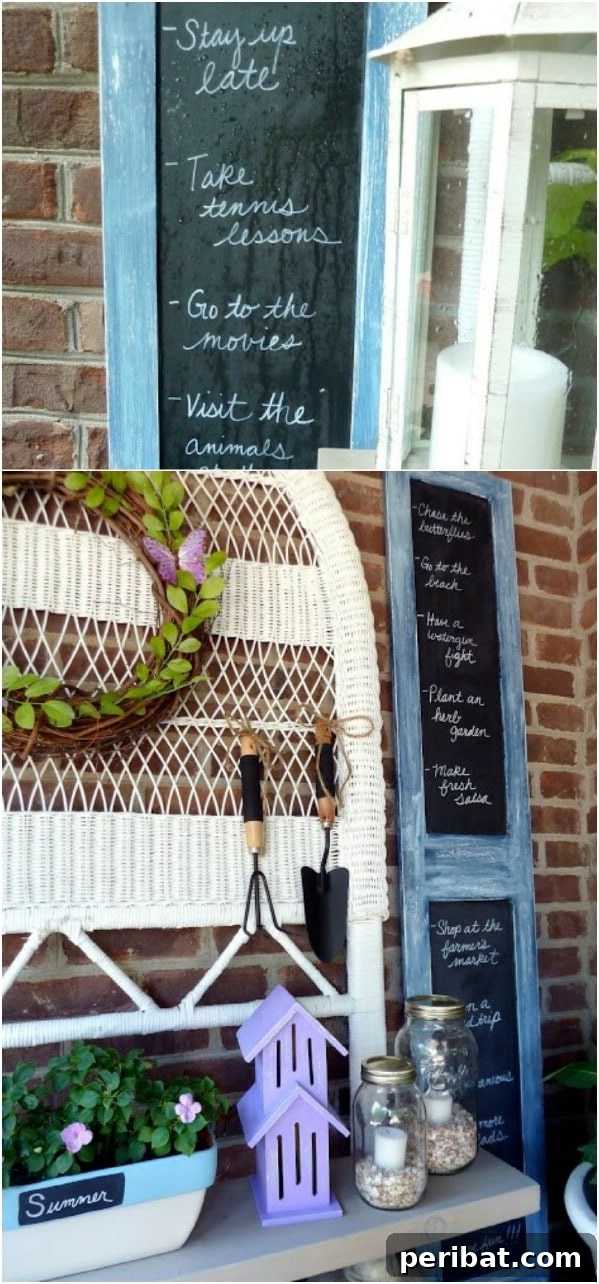 - Stay up
late
- Take
tennis
lessons
- Go to the
movies
- Visit the
animals
- Chase the
butterflies
- Go to the
beach
- Have a
watergun
fight
- Plant an
herb
garden
- Make
fresh
salsa
- Shop at the
farmer's
market
a
more
Summer
peribat.com